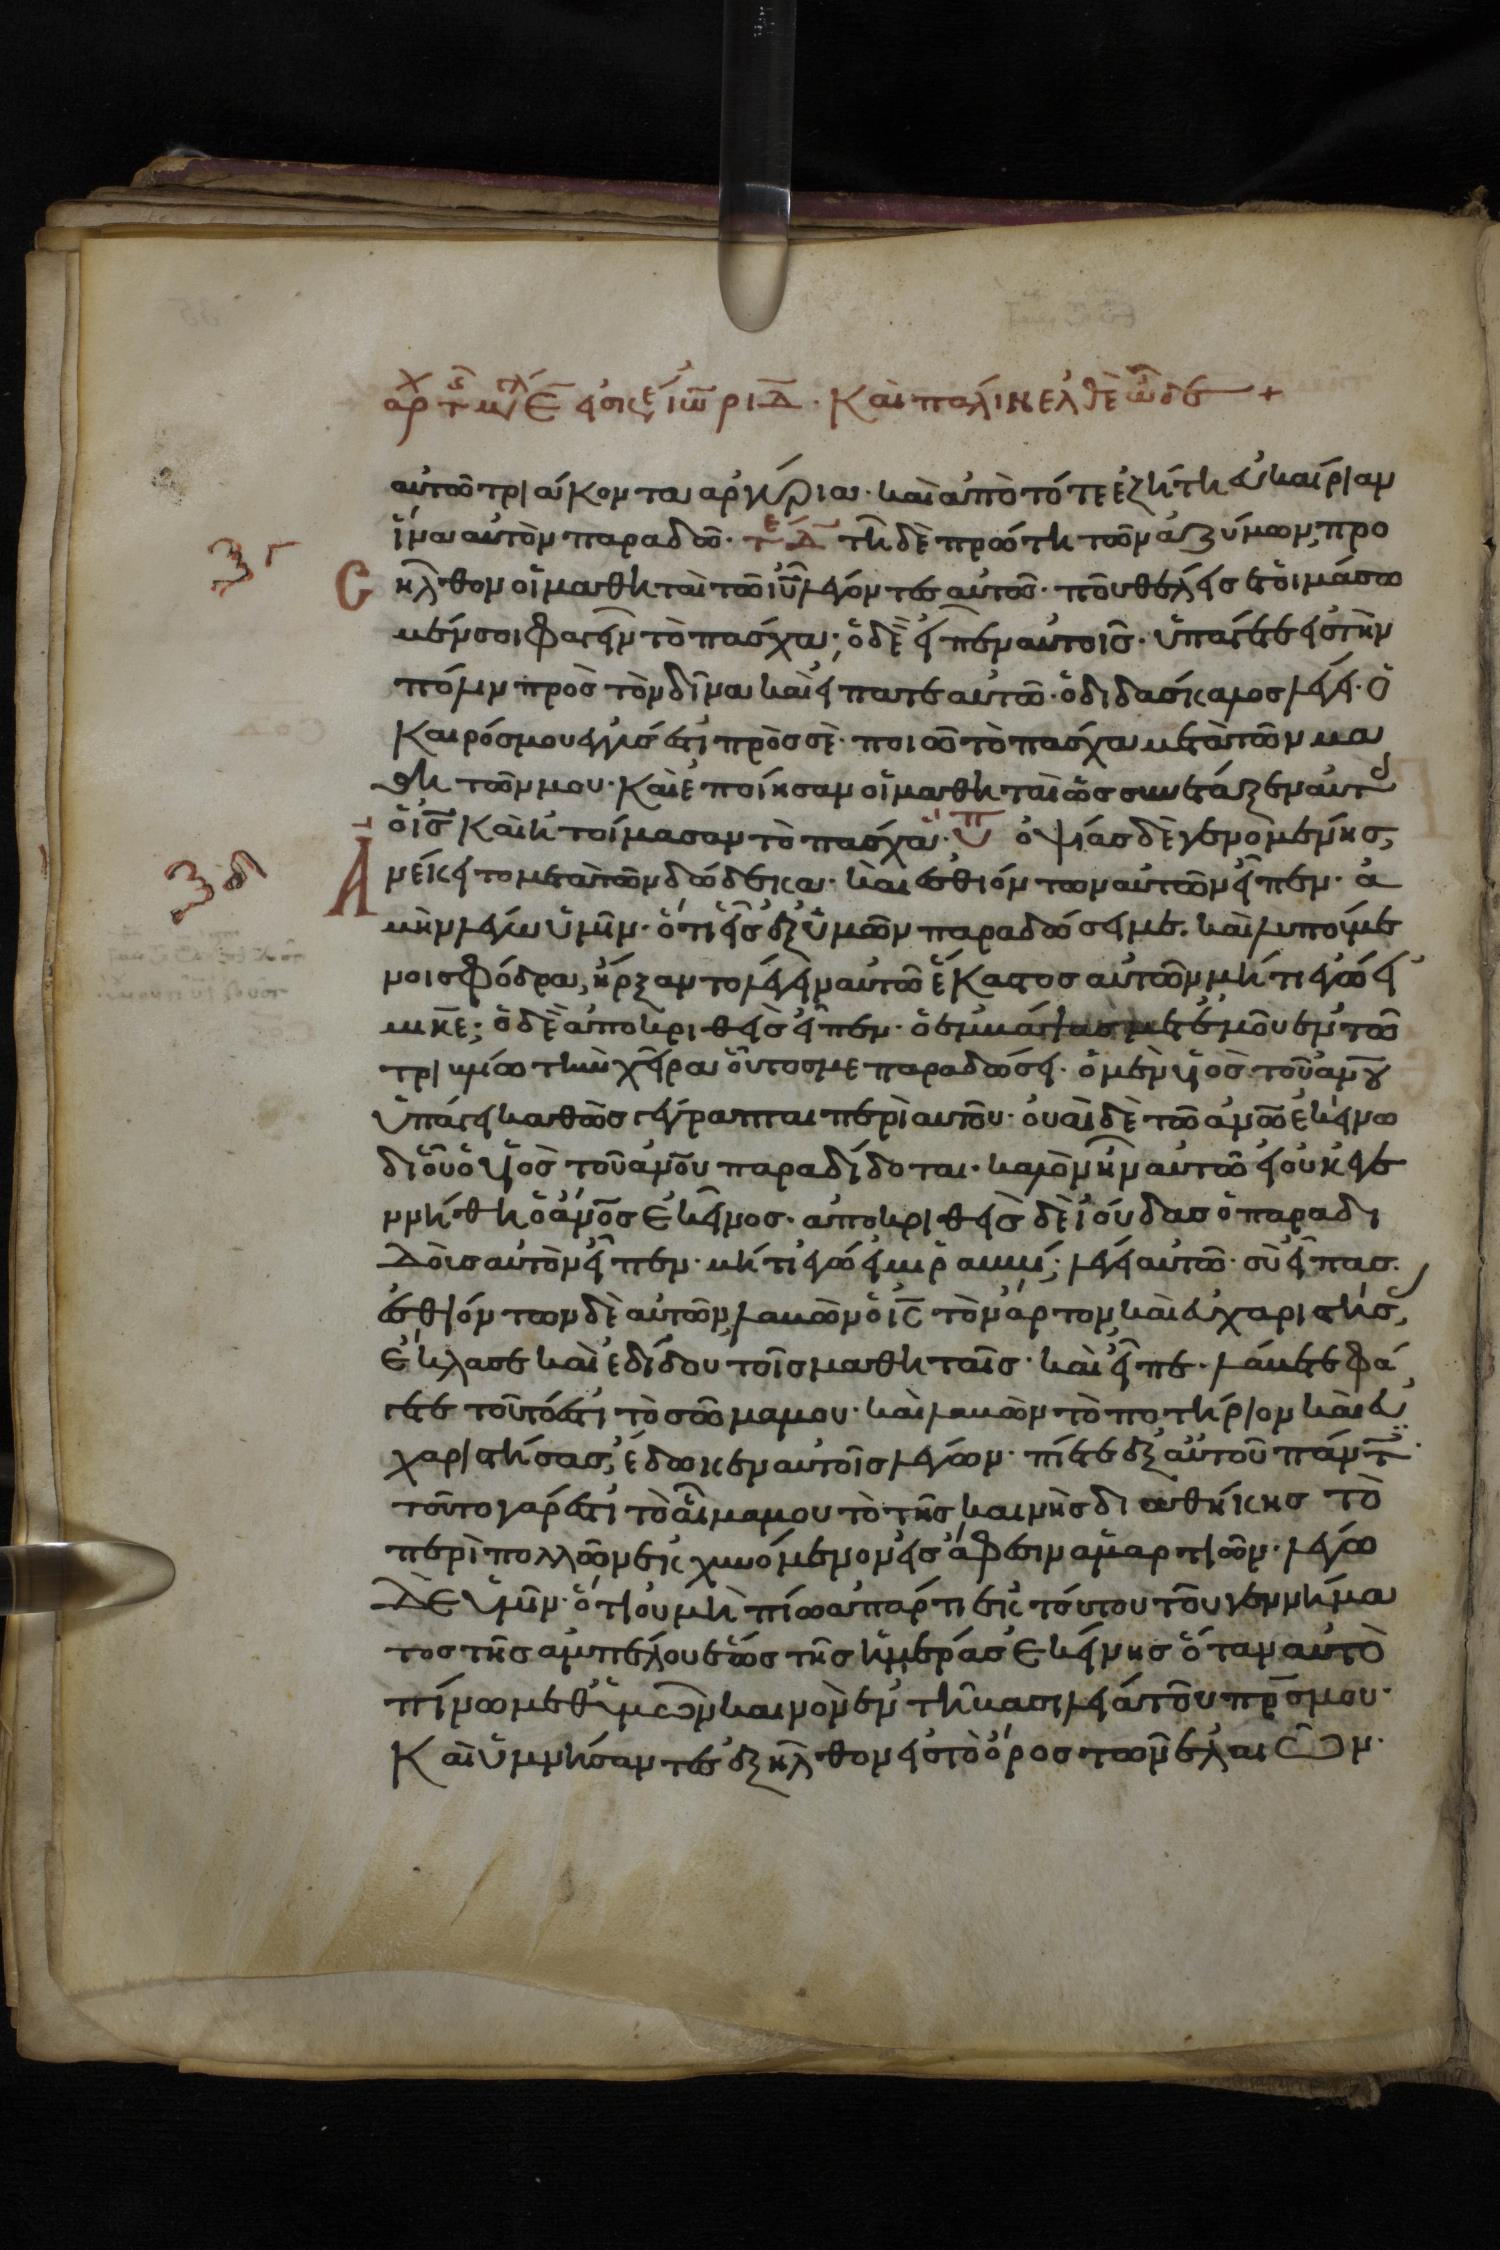 αὐτῶ τριάκοντα ἀργύρια· καὶ ἀπὸ τότε ἐζήτει εὐκαιρίαν
ἵνα αὐτὸν παραδῶ· τῆ δὲ πρώτη τῶν ἀζύμων, προ
σῆλθον οἱ μαθηταὶ τῶ ιῦ λέγοντες αὐτῶ· ποῦ θέλεις ἑτοιμάσω
μέν σοι φαγεῖν τὸ πάσχα; ὁ δὲ εἶπεν αὐτοῖς· ὑπάγετε εἰς τὴν
πόλιν πρὸς τὸν δῖνα καὶ εἴπατε αὐτῶ· ὁ διδάσκαλος λέγει· ὁ
καιρός μου ἐγγύς ἐστι πρὸς σὲ· ποιῶ τὸ πάσχα μετὰ τῶν μα
θητῶν μου· Καὶ ἐποίησαν οἱ μαθηταὶ ὡς συνέταξεν αὐτοῖς
ὁ ις̅ καὶ ἡτοίμασαν τὸ πάσχα· ὀψίας δὲ γενομένης,
Ἀνέκειτο μετὰ τῶν δώδεκα· καὶ ἐσθιόντων αὐτῶν εἶπεν· ἀ
μὴν λέγω ὑμῖν· ὅτι εἷς ἐξ ὑμῶν παραδώσει με. καὶ λυπούμε
νοι σφόδρα, ἤρξαντο λέγειν αὐτῶ ἕκαστος αὐτῶν μήτι ἐγώ εἰ
μι κε̅; ὁ δὲ ἀποκριθεὶς εἶπεν· ὁ ἐμβάψας μετ' ἐμοῦ ἐν τῶ
τρυβλίω τὴν χεῖρα οὗτός με παραδώσει· ὁ μὲν υἱὸς τοῦ αν̅ου
ὑπάγει καθὼς γέγραπται περὶ αὐτοῦ· οὐαὶ δὲ τῶ αν̅ω ἐκείνω
δι' οὗ ὁ υἱὸς τοῦ αν̅ου παραδίδοται· καλὸν ἦν αὐτῶ εἰ οὐκ ἐγε
ννήθη ὁ αν̅ος ἐκεῖνος· ἀποκριθεὶς δὲ ἰούδας ὁ παραδι
δοὺς αὐτὸν εἶπεν· μήτι ἐγώ εἰμι ῥαββί; λέγει αὐτῶ· σὺ εἶπας.
ἐσθιόντων δὲ αὐτῶν, λαβὼν ὁ ις̅ τὸν ἄρτον καὶ εὐχαριστήσας,
ἔκλασε καὶ ἐδίδου τοῖς μαθηταῖς· καὶ εἶπε· λάβετε φά
γετε τοῦτό ἐστι τὸ σῶμα μου· καὶ λαβὼν τὸ ποτήριον καὶ εὐ
χαριστήσας, ἔδωκεν αὐτοῖς λέγων· πίετε ἐξ αὐτοῦ πάντες·
τοῦτο γάρ ἐστι τὸ αἷμα μου τὸ τῆς καινῆς διαθήκης τὸ
περὶ πολλῶν ἐκχυνόμενον εἰς ἄφεσιν ἁμαρτιῶν· λέγω
δὲ ὑμῖν· ὅτι οὐ μὴ πίω ἀπάρτι ἐκ τούτου τοῦ γεννήμα
τος τῆς ἀμπέλου ἕως τῆς ἡμέρας ἐκείνης ὅταν αὐτὸ
πίνω μεθ' ὑμῶν καινὸν ἐν τῆ βασιλεία τοῦ πρ̅ς μου·
Καὶ ὑμνήσαντες ἐξῆλθον εἰς τὸ ὄρος τῶν ἐλαιῶν·